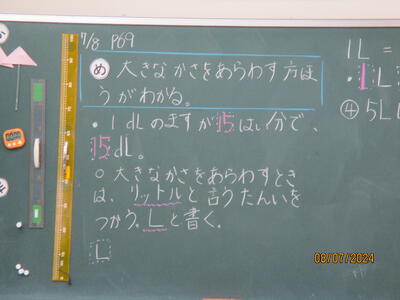 7/8 P69
め 大きなかさをあらわす方ほ
うがわかる。
・1dLのますが15はい分で、
15dL。
○大きなかさをあらわすとき
は、リットルと言うたんいを
つかう。Lと書く。
L
1L =
・1L
④5L
08/07/2024